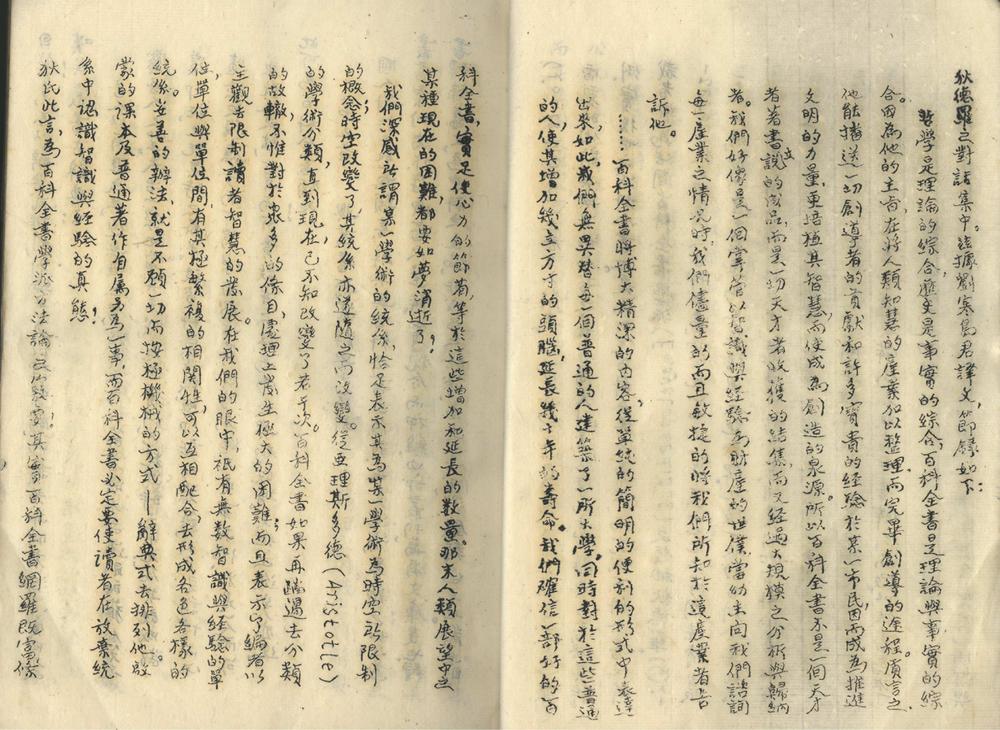 狄德羅之對話集中。據劉寒島君譯文,節錄如下:
哲學是理論的綜合,歷史是事實的綜合,百科全書是理論與事實的綜
合。因為他的主旨,在將人類知慧的產業加以整理,而完畢創導的途程。質言之,
他能播送一切創導者的貢獻和許多寶貴的經驗於某一市民,因而成為推進
文明的力量,更培植其智慧,而使成為創造的泉源。所以百科全書不是一個天才
者著書立說的成品,而是一切天才者收獲的結集,而又經過大規模之分析與歸納
者。我們好像是一個掌管以知識與經驗為財產的世僕,當幼主向我們諮詢
每一產業之情況時,我們儘量的而且敏捷的將我們所知於這產業者告
訴他。
……百科全書將博大精深的內容,從單純的簡明的便利的形式中表達
出來,如此,我們無異替每一個普通的人建築了一所大學。同時對於這些普通
的人,使其增加幾立方寸的頭腦,延長幾千年的壽命。我們確信一部好的百
科全書,實足使心力的節省,等於這些增加和延長的數量。那末人類展望中之
某種現在的困難,都要如夢消逝了,
我們深感所謂某一學術的統係,恰足表示其為某一學術為時空所限制
的概念,時空改變了,其統係亦遂隨之而改變。從亞理斯多德(Aristotle)
的學術分類,直到現在,已不知改變了若干次。百科全書如果再蹈過去分類
的故轍,不惟對於眾多的條目,處理上發生極大的困難,而且表示了編者以
主觀去限制讀者智慧的發展。在我們的眼中,祇有無數智識與經驗的單
位,單位與單位間,有其極繁複的相關性,可以互相配合,去形成各色各樣的
統係。妥善的辦法,就是不顧一切而按極機械的方式—辭典式去排列他。啟
蒙的課本及普通著作自屬另為一事,而百科全書必定要使讀者在放棄統
系中認識智識與經驗的真態!
狄氏此言,為百科全書學派方法論之最要。其實百科全書網羅既富,條